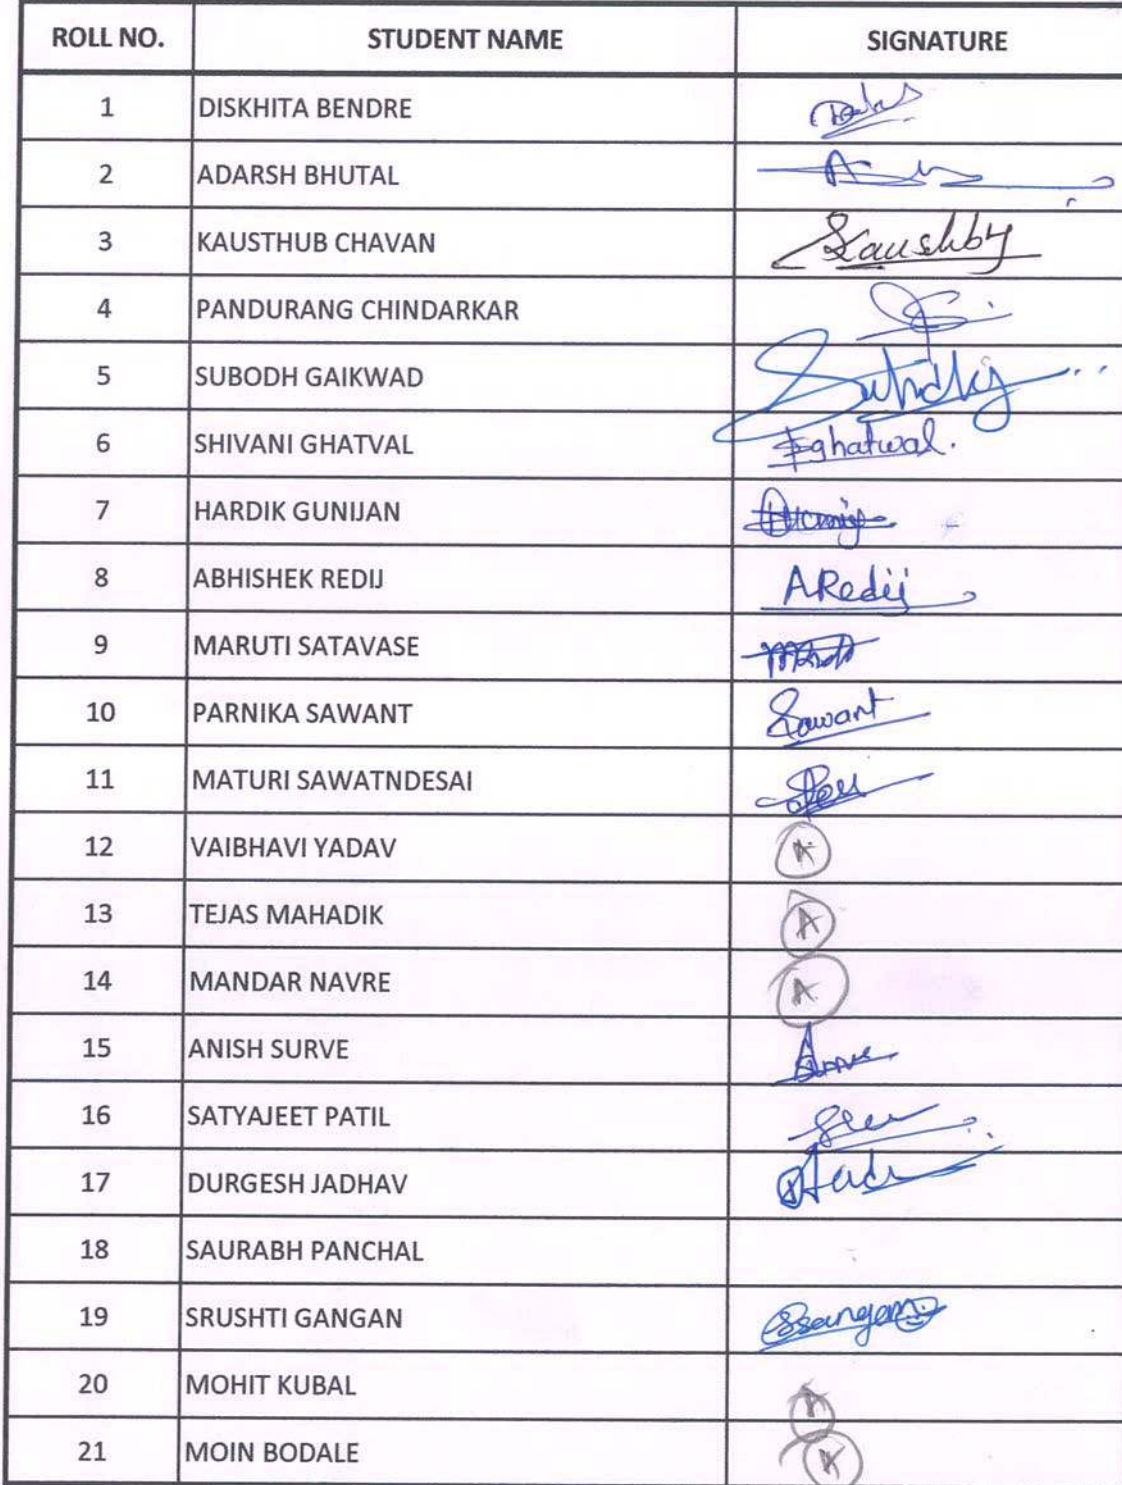 ROLL NO. STUDENT NAME SIGNATURE
1 DISKHITA BENDRE
2 ADARSH BHUTAL
3 KAUSTHUB CHAVAN
4 PANDURANG CHINDARKAR
5 SUBODH GAIKWAD
6 SHIVANI GHATVAL Sghatwal.
7 HARDIK GUNIJAN
8 ABHISHEK REDIJ ARedij
9 MARUTI SATAVASE
10 PARNIKA SAWANT Sawant
11 MATURI SAWATNDESAI
12 VAIBHAVI YADAV A
13 TEJAS MAHADIK A
14 MANDAR NAVRE A
15 ANISH SURVE
16 SATYAJEET PATIL
17 DURGESH JADHAV
18 SAURABH PANCHAL
19 SRUSHTI GANGAN
20 MOHIT KUBAL A
21 MOIN BODALE A